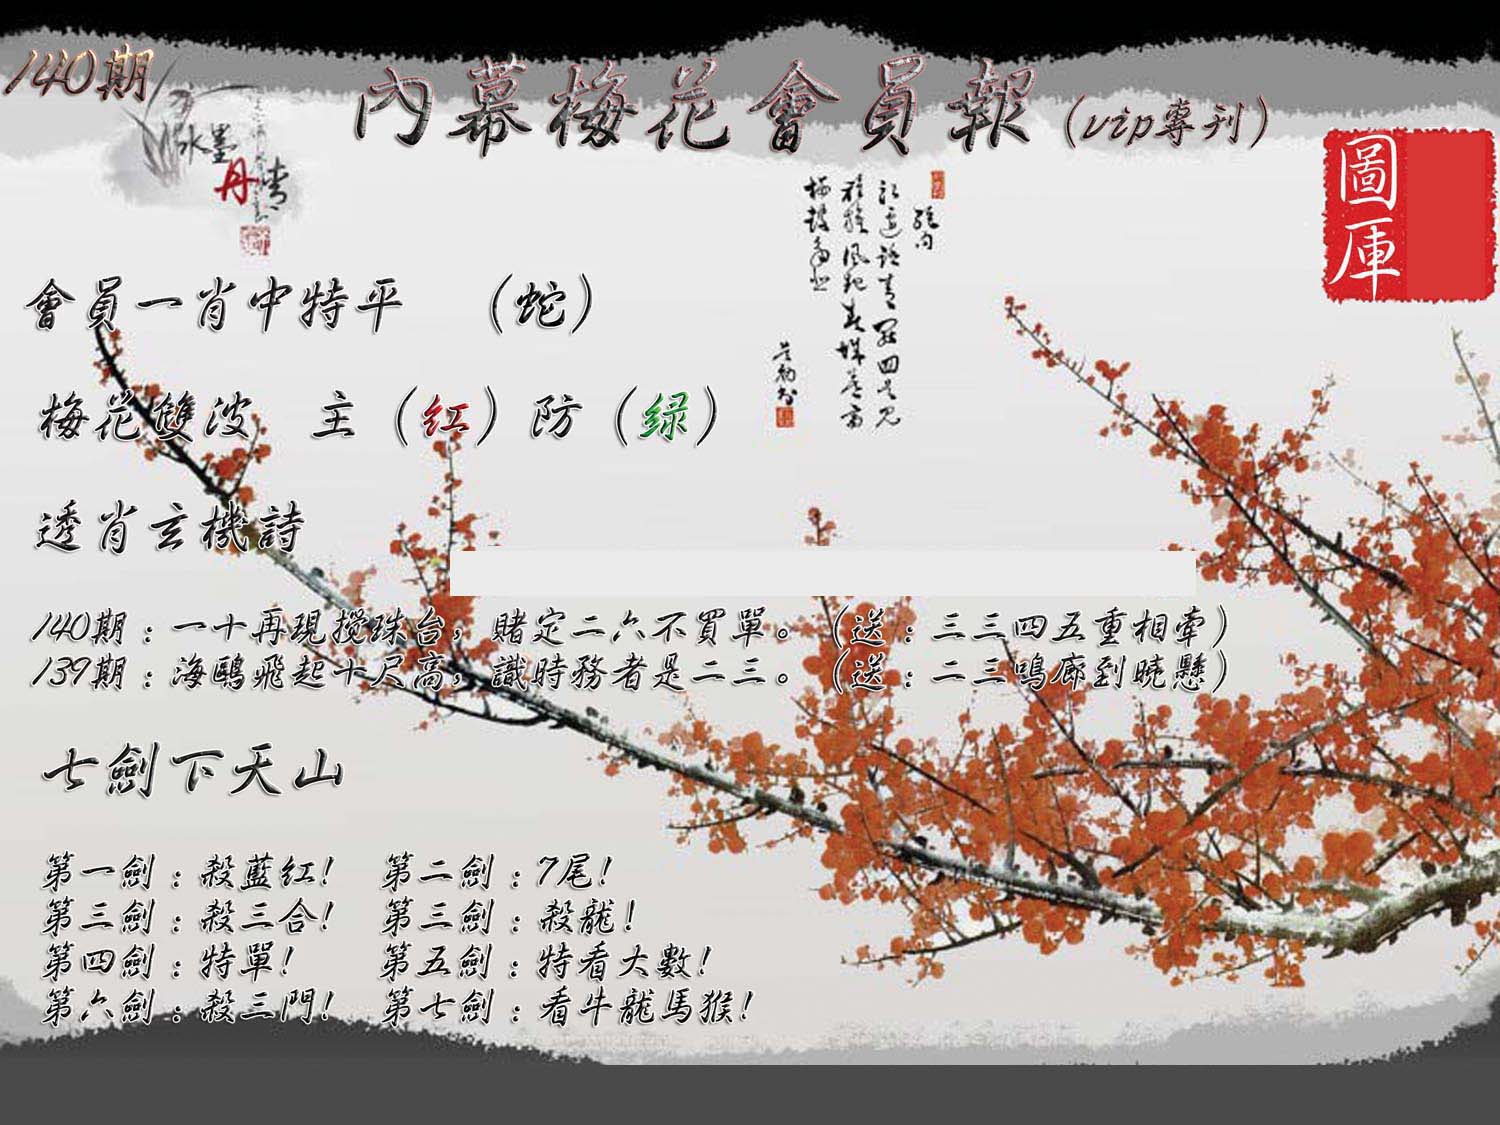 140期
內幕梅花會員報(vip專刊)
水墨
丹青
圖庫
會員一肖中特平 (蛇)
梅花雙波 主(紅)防(绿)
透肖玄機詩
140期：一十再現攪珠台，賭定二六不買單。(送：三三四五重相牽)
139期：海鷗飛起十尺高，識時務者是二三。(送：二三鳴廊到曉懸)
七劍下天山
第一劍：殺藍紅! 第二劍：7尾!
第三劍：殺三合! 第三劍：殺龍!
第四劍：特單! 第五劍：特看大數!
第六劍：殺三門! 第七劍：看牛龍馬猴!